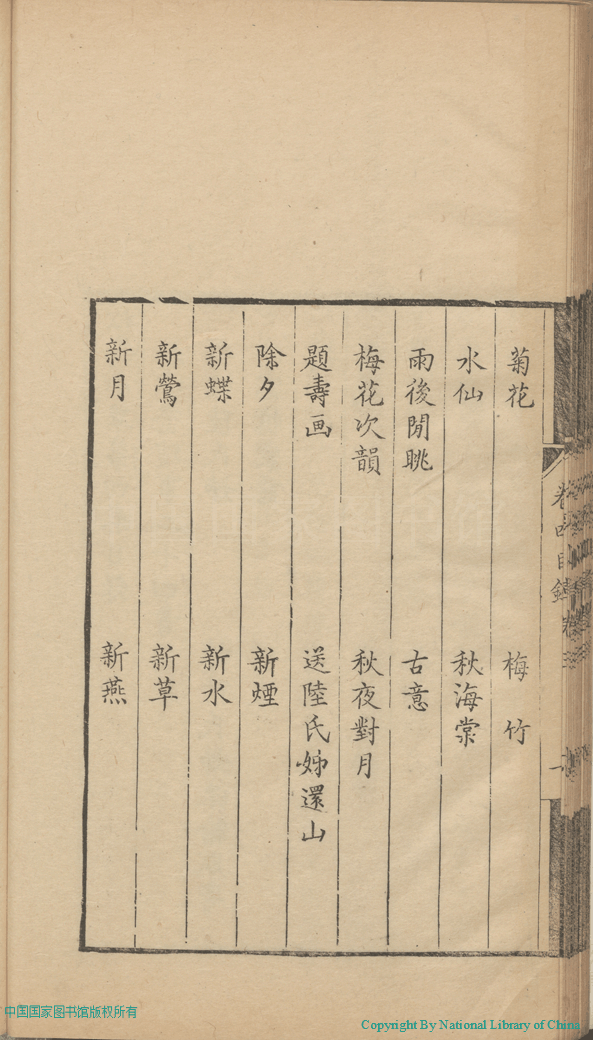 菊花
梅竹
水仙
秋海棠
雨後閒眺
古意
梅花次韻
秋夜對月
題壽画
送陸氏姊還山
除夕
新煙
新蝶
新水
新鶯
新草
新月
新燕
卷四目錄
一
中国国家图书馆
中国国家图书馆版权所有
Copyright By National Library of China